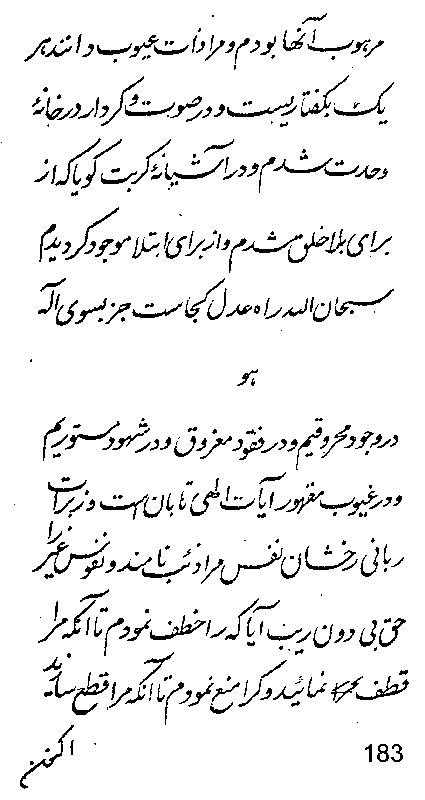 مرهوب آنها بودم و مرادات عیوب دانند هر
یک بگفتاریست و در صوت و کردار در خانهٔ
وحدت شدم و در آشیانهٔ کربت گویا که از
برای بلا خلق شدم و از برای ابتلا موجود گردیدم
سبحان الله راه عدل کجاست جز بسوی اله
هو
در وجود محروقیم و در فقود مغروق و در شهود مستوریم
و در غیوب مقهور آیات الهی تابان است و زبرات
ربانی رخشان نفس مرا ذئب نامند و نفوس غیر را
حق بی دون ریب آیا که را خطف نمودم تا آنکه مرا
قطف نمائید و کرا منع نمودم تا آنکه مرا قطع سازند
اکنون
183